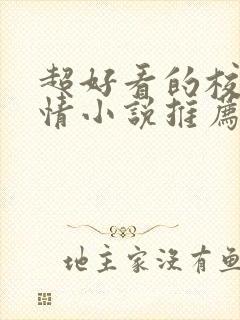 超好看的校
情小說推薦
地主家沒有魚